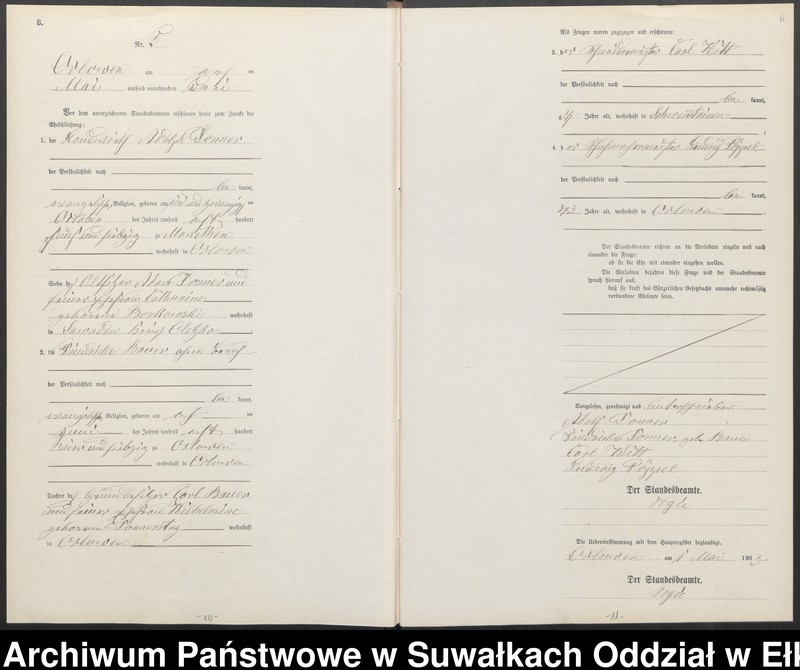 B.
Nr. 5
Orlowen am
Mai tausend neunhundert drei
Vor dem unterzeichneten Standesbeamten erschienen heute zum Zwecke der
Eheschließung:
1. der Adolph Donner
der Persönlichkeit nach
be kannt,
evangelischer Religion, geboren am ein und zwanzigsten
Oktober des Jahres tausend acht hundert
fünf und siebzig zu
wohnhaft in Orlowen
Sohn des Altsitzer Donner und
seiner Ehefrau Catharine
geborene Borkowski wohnhaft
in Kreis Oletzko
2. die Friederike Bauer ohne Beruf
der Persönlichkeit nach
be kannt,
evangelischer Religion, geboren am
Juni des Jahres tausend acht hundert
und siebzig zu Orlowen
wohnhaft in Orlowen
Tochter des Grundbesitzer Carl Bauer
und seiner Ehefrau Wilhelmine
geborene Donnerstag wohnhaft
in Orlowen
-10-
6
Als Zeugen waren zugezogen und erschienen:
3. der Carl Witt
der Persönlichkeit nach
be kannt,
Jahre alt, wohnhaft in
4. der Schuhmachermeister Ludwig Pöppel
der Persönlichkeit nach
be kannt,
Jahre alt, wohnhaft in Orlowen
Der Standesbeamte richtete an die Verlobten einzeln und nach
einander die Frage:
ob sie die Ehe mit einander eingehen wollen.
Die Verlobten bejahten diese Frage und der Standesbeamte
sprach hierauf aus,
daß sie kraft des Bürgerlichen Gesetzbuchs nunmehr rechtmäßig
verbundene Eheleute seien.
Vorgelesen, genehmigt und unterschrieben
Adolf Donner
Friederike Donner geb. Bauer
Carl Witt
Ludwig Pöppel
Der Standesbeamte.
Die Uebereinstimmung mit dem Hauptregister beglaubigt.
Orlowen am Mai 1903
Der Standesbeamte.
-11-
Archiwum Państwowe w Suwałkach Oddział w Eł